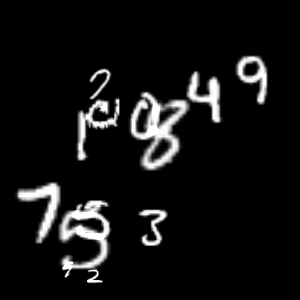 2
1 0 8 4 9
7 5 3
2